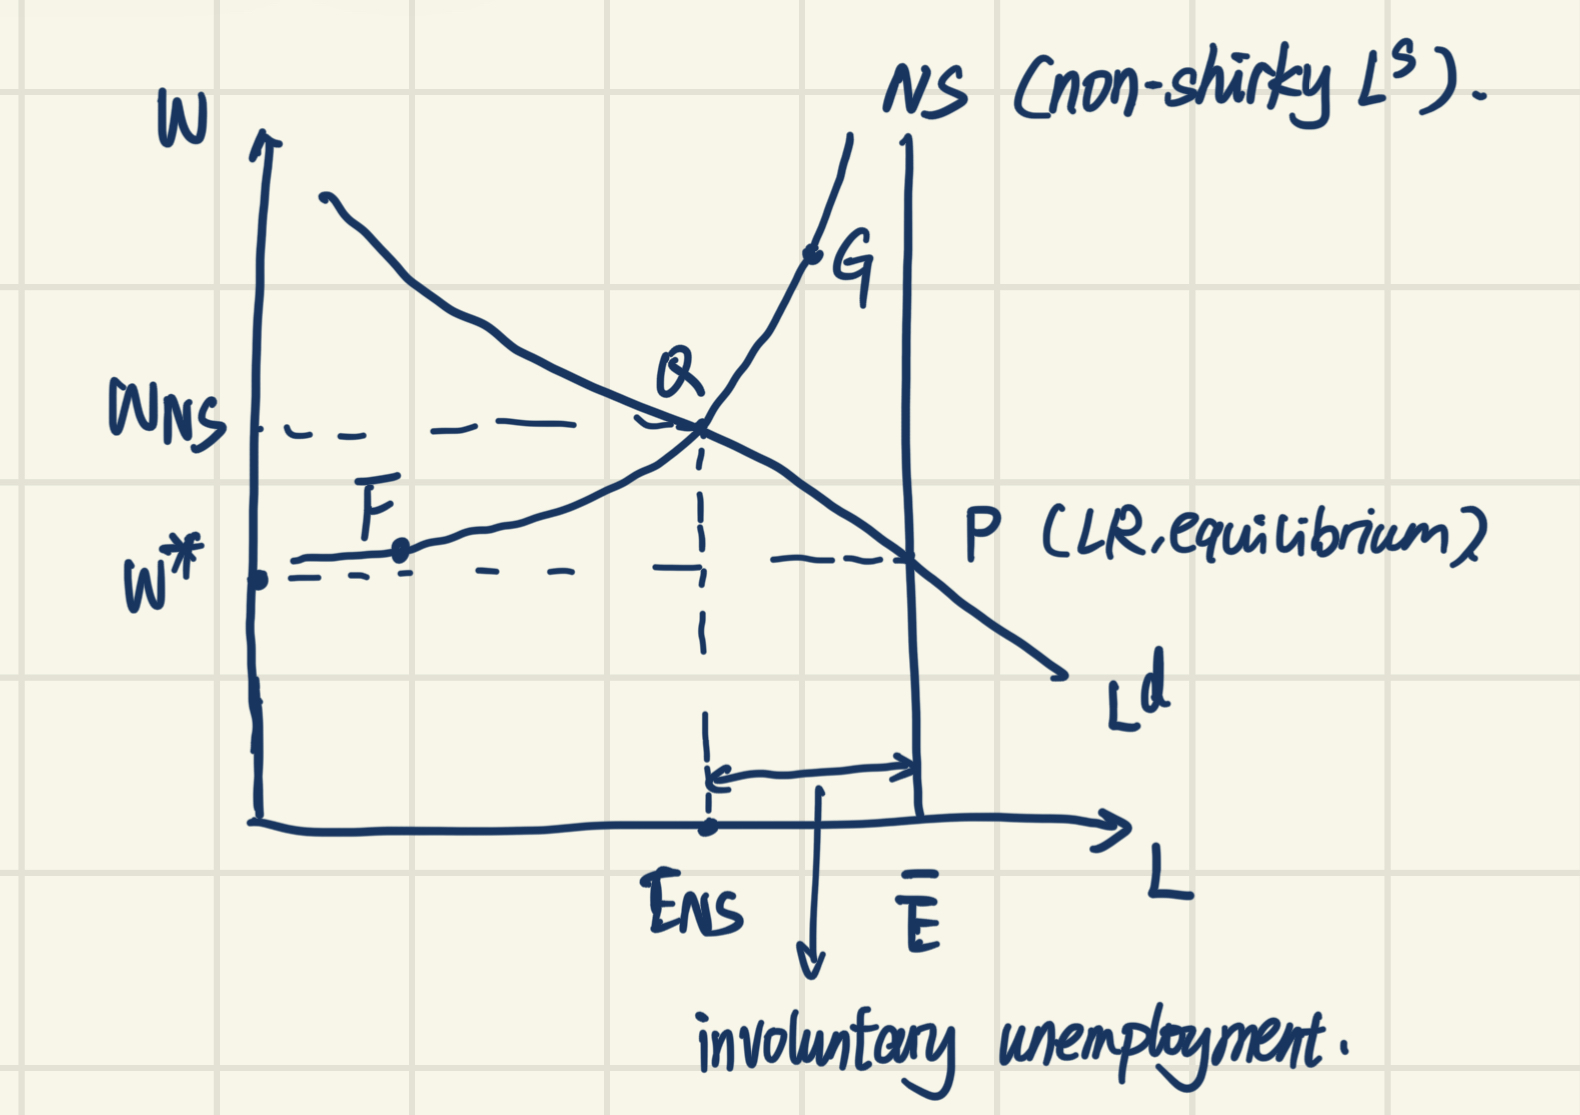 NS (non-shirky Lˢ).
W
G
Q
W_NS
F
P (LR. equilibrium)
W*
Lᵈ
L
E_NS
E̅
involuntary unemployment.